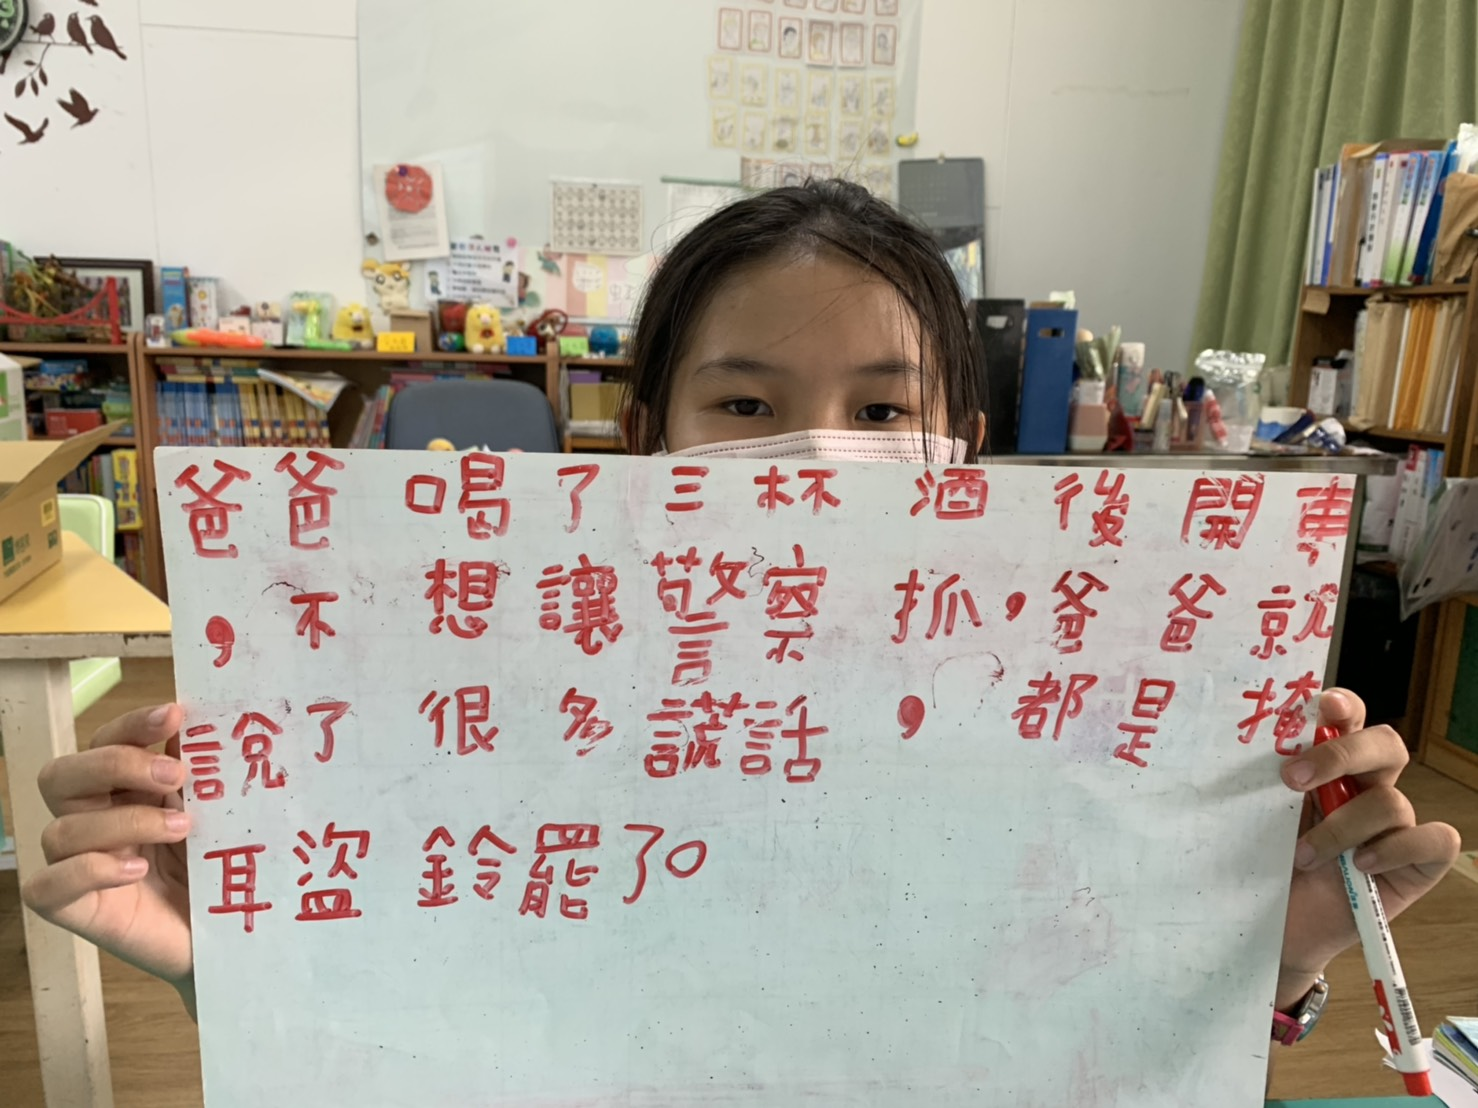 爸爸喝了三杯酒後開車
，不想讓警察抓，爸爸就
說了很多謊話，都是掩
耳盜鈴罷了。